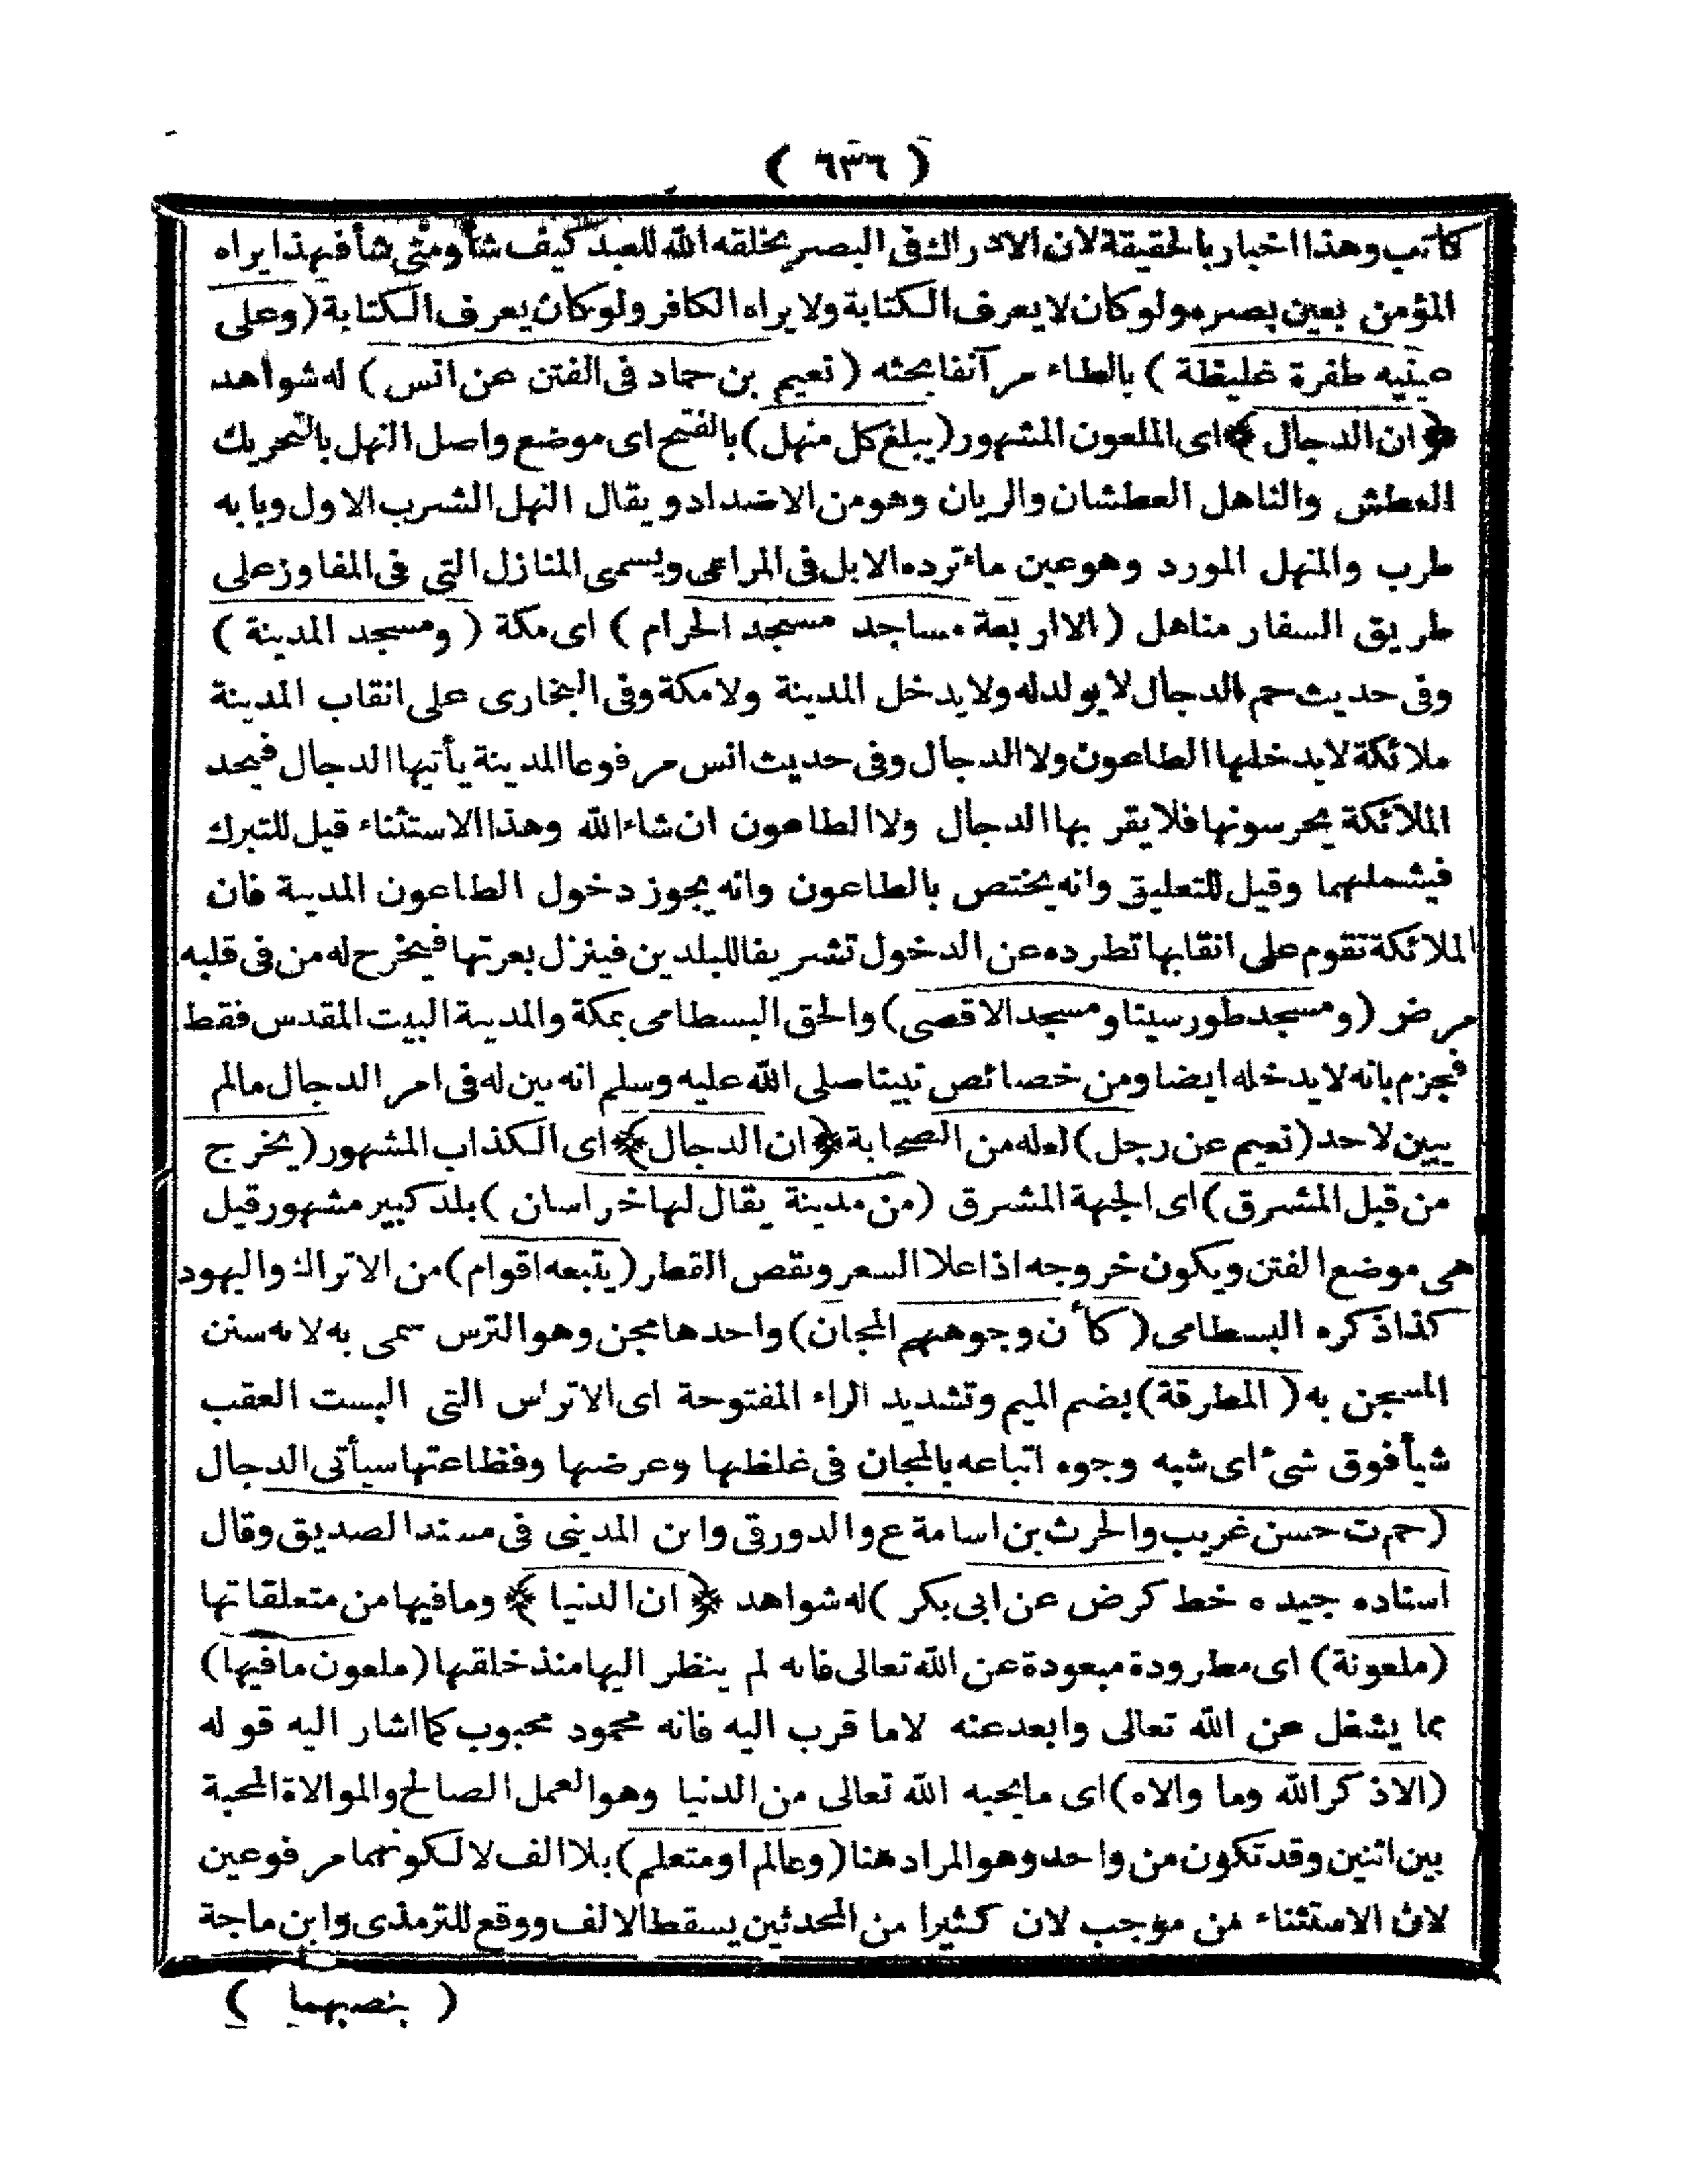 ( ٦٣٦ )
كاتب وهذا اخبار بالحقيقة لان الادراك فى البصر يخلقه الله للعبد كيف شأ ومتى شأ فبهذا يراه
المؤمن بعين بصره ولو كان لا يعرف الكتابة ولا يراه الكافر ولو كان يعرف الكتابة (وعلى
عينيه طفرة غليظة ) بالطاء مر آنفا بحثه (نعيم بن حماد فى الفتن عن انس ) له شواهد
﴿ ان الدجال ﴾ اى الملعون المشهور (يبلغ كل منهل) بالفتح اى موضع واصل النهل بالتحريك
العطش والناهل العطشان والريان وهو من الاضداد ويقال النهل الشرب الاول وبابه
طرب والمنهل المورد وهو عين ماء ترده الابل فى المراعى ويسمى المنازل التى فى المفاوز على
طريق السفار مناهل (الا اربعة مساجد مسجد الحرام ) اى مكة ( ومسجد المدينة )
وفى حديث حم الدجال لا يولد له ولا يدخل المدينة ولا مكة وفى البخارى على انقاب المدينة
ملائكة لا يدخلها الطاعون ولا الدجال وفى حديث انس مرفوعا المدينة يأتيها الدجال فيجد
الملائكة يحرسونها فلا يقر بها الدجال ولا الطاعون ان شاء الله وهذا الاستثناء قيل للتبرك
فيشملهما وقيل للتعليق وانه يختص بالطاعون وانه يجوز دخول الطاعون المدينة فان
الملائكة تقوم على انقابها تطرده عن الدخول تشريفا للبلدين فينزل بعرتها فيخرج له من فى قلبه
مرض (ومسجد طور سينا ومسجد الاقصى) والحق البسطامى بمكة والمدينة البيت المقدس فقط
فجزم بانه لا يدخله ايضا ومن خصائص نبينا صلى الله عليه وسلم انه بين له فى امر الدجال مالم
يبين لاحد (نعيم عن رجل) لعله من الصحابة ﴿ ان الدجال ﴾ اى الكذاب المشهور (يخرج
من قبل المشرق) اى الجهة المشرق (من مدينة يقال لها خراسان ) بلد كبير مشهور قيل
هى موضع الفتن ويكون خروجه اذا علا السعر ونقص القطر (يتبعه اقوام) من الاتراك واليهود
كذا ذكره البسطامى (كأن وجوههم المجان) واحدها مجن وهو الترس سمى به لانه سنن
المسجن به ( المطرقة) بضم الميم وتشديد الراء المفتوحة اى الاتراس التى البست العقب
شيأ فوق شئ اى شبه وجوه اتباعه بالمجان فى غلظها وعرضها وفظاعتها سيأتى الدجال
(حم ت حسن غريب والحرث بن اسامة ع والدورقى وابن المدينى فى مسند الصديق وقال
اسناده جيد ه خط كر ض عن ابى بكر ) له شواهد ﴿ ان الدنيا ﴾ وما فيها من متعلقاتها
(ملعونة) اى مطرودة مبعودة عن الله تعالى فانه لم ينظر اليها منذ خلقها (ملعون ما فيها)
مما يشغل عن الله تعالى وابعد عنه لا ما قرب اليه فانه محمود محبوب كما اشار اليه قوله
(الا ذكر الله وما والاه) اى ما يحبه الله تعالى من الدنيا وهو العمل الصالح والموالاة المحبة
بين اثنين وقد تكون من واحد وهو المراد هنا (وعالم او متعلم) بلا الف لا لكونهما مرفوعين
لان الاستثناء من موجب لان كثيرا من المحدثين يسقط الالف ووقع للترمذى وابن ماجة
( بنصبهما )